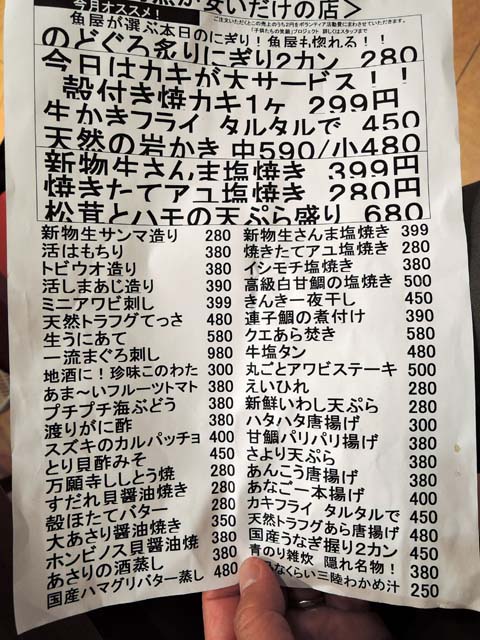 今月オススメ！ 魚が安いだけの店＞
魚屋が選ぶ本日のにぎり！魚屋も惚れる！！
ご注文いただくとこの売上のうち2円をボランティア活動費にまわさせていただきます。
「子供たちの笑顔」プロジェクト 詳しくはスタッフまで
のどぐろ炙りにぎり2カン 280
今日はカキが大サービス！！
殻付き焼カキ1ヶ 299円
生かきフライ タルタルで 450
天然の岩かき 中590/小480
新物生さんま塩焼き 399円
焼きたてアユ塩焼き 280円
松茸とハモの天ぷら盛り 680
新物生サンマ造り 280
活はもちり 380
トビウオ造り 380
活しまあじ造り 390
ミニアワビ刺し 399
天然トラフグてっさ 480
生うにあて 580
一流まぐろ刺し 980
地酒に！珍味このわた 300
あま〜いフルーツトマト 380
プチプチ海ぶどう 380
渡りがに酢 380
スズキのカルパッチョ 400
とり貝酢みそ 450
万願寺ししとう焼 280
すだれ貝醤油焼き 280
殻ほたてバター 280
大あさり醤油焼き 350
ホンビノス貝醤油焼 380
あさりの酒蒸し 380
国産ハマグリバター蒸し 480
新物生さんま塩焼き 399
焼きたてアユ塩焼き 280
イシモチ塩焼き 380
高級白甘鯛の塩焼き 500
きんき一夜干し 450
連子鯛の煮付け 390
クエあら焚き 580
牛塩タン 480
丸ごとアワビステーキ 500
えいひれ 280
新鮮いわし天ぷら 280
ハタハタ唐揚げ 300
甘鯛パリパリ揚げ 380
さより天ぷら 380
あんこう唐揚げ 380
あなご一本揚げ 400
カキフライ タルタルで 450
天然トラフグあら唐揚げ 480
国産うなぎ握り2カン 450
青のり雑炊 隠れ名物！ 380
くらい三陸わかめ汁 250